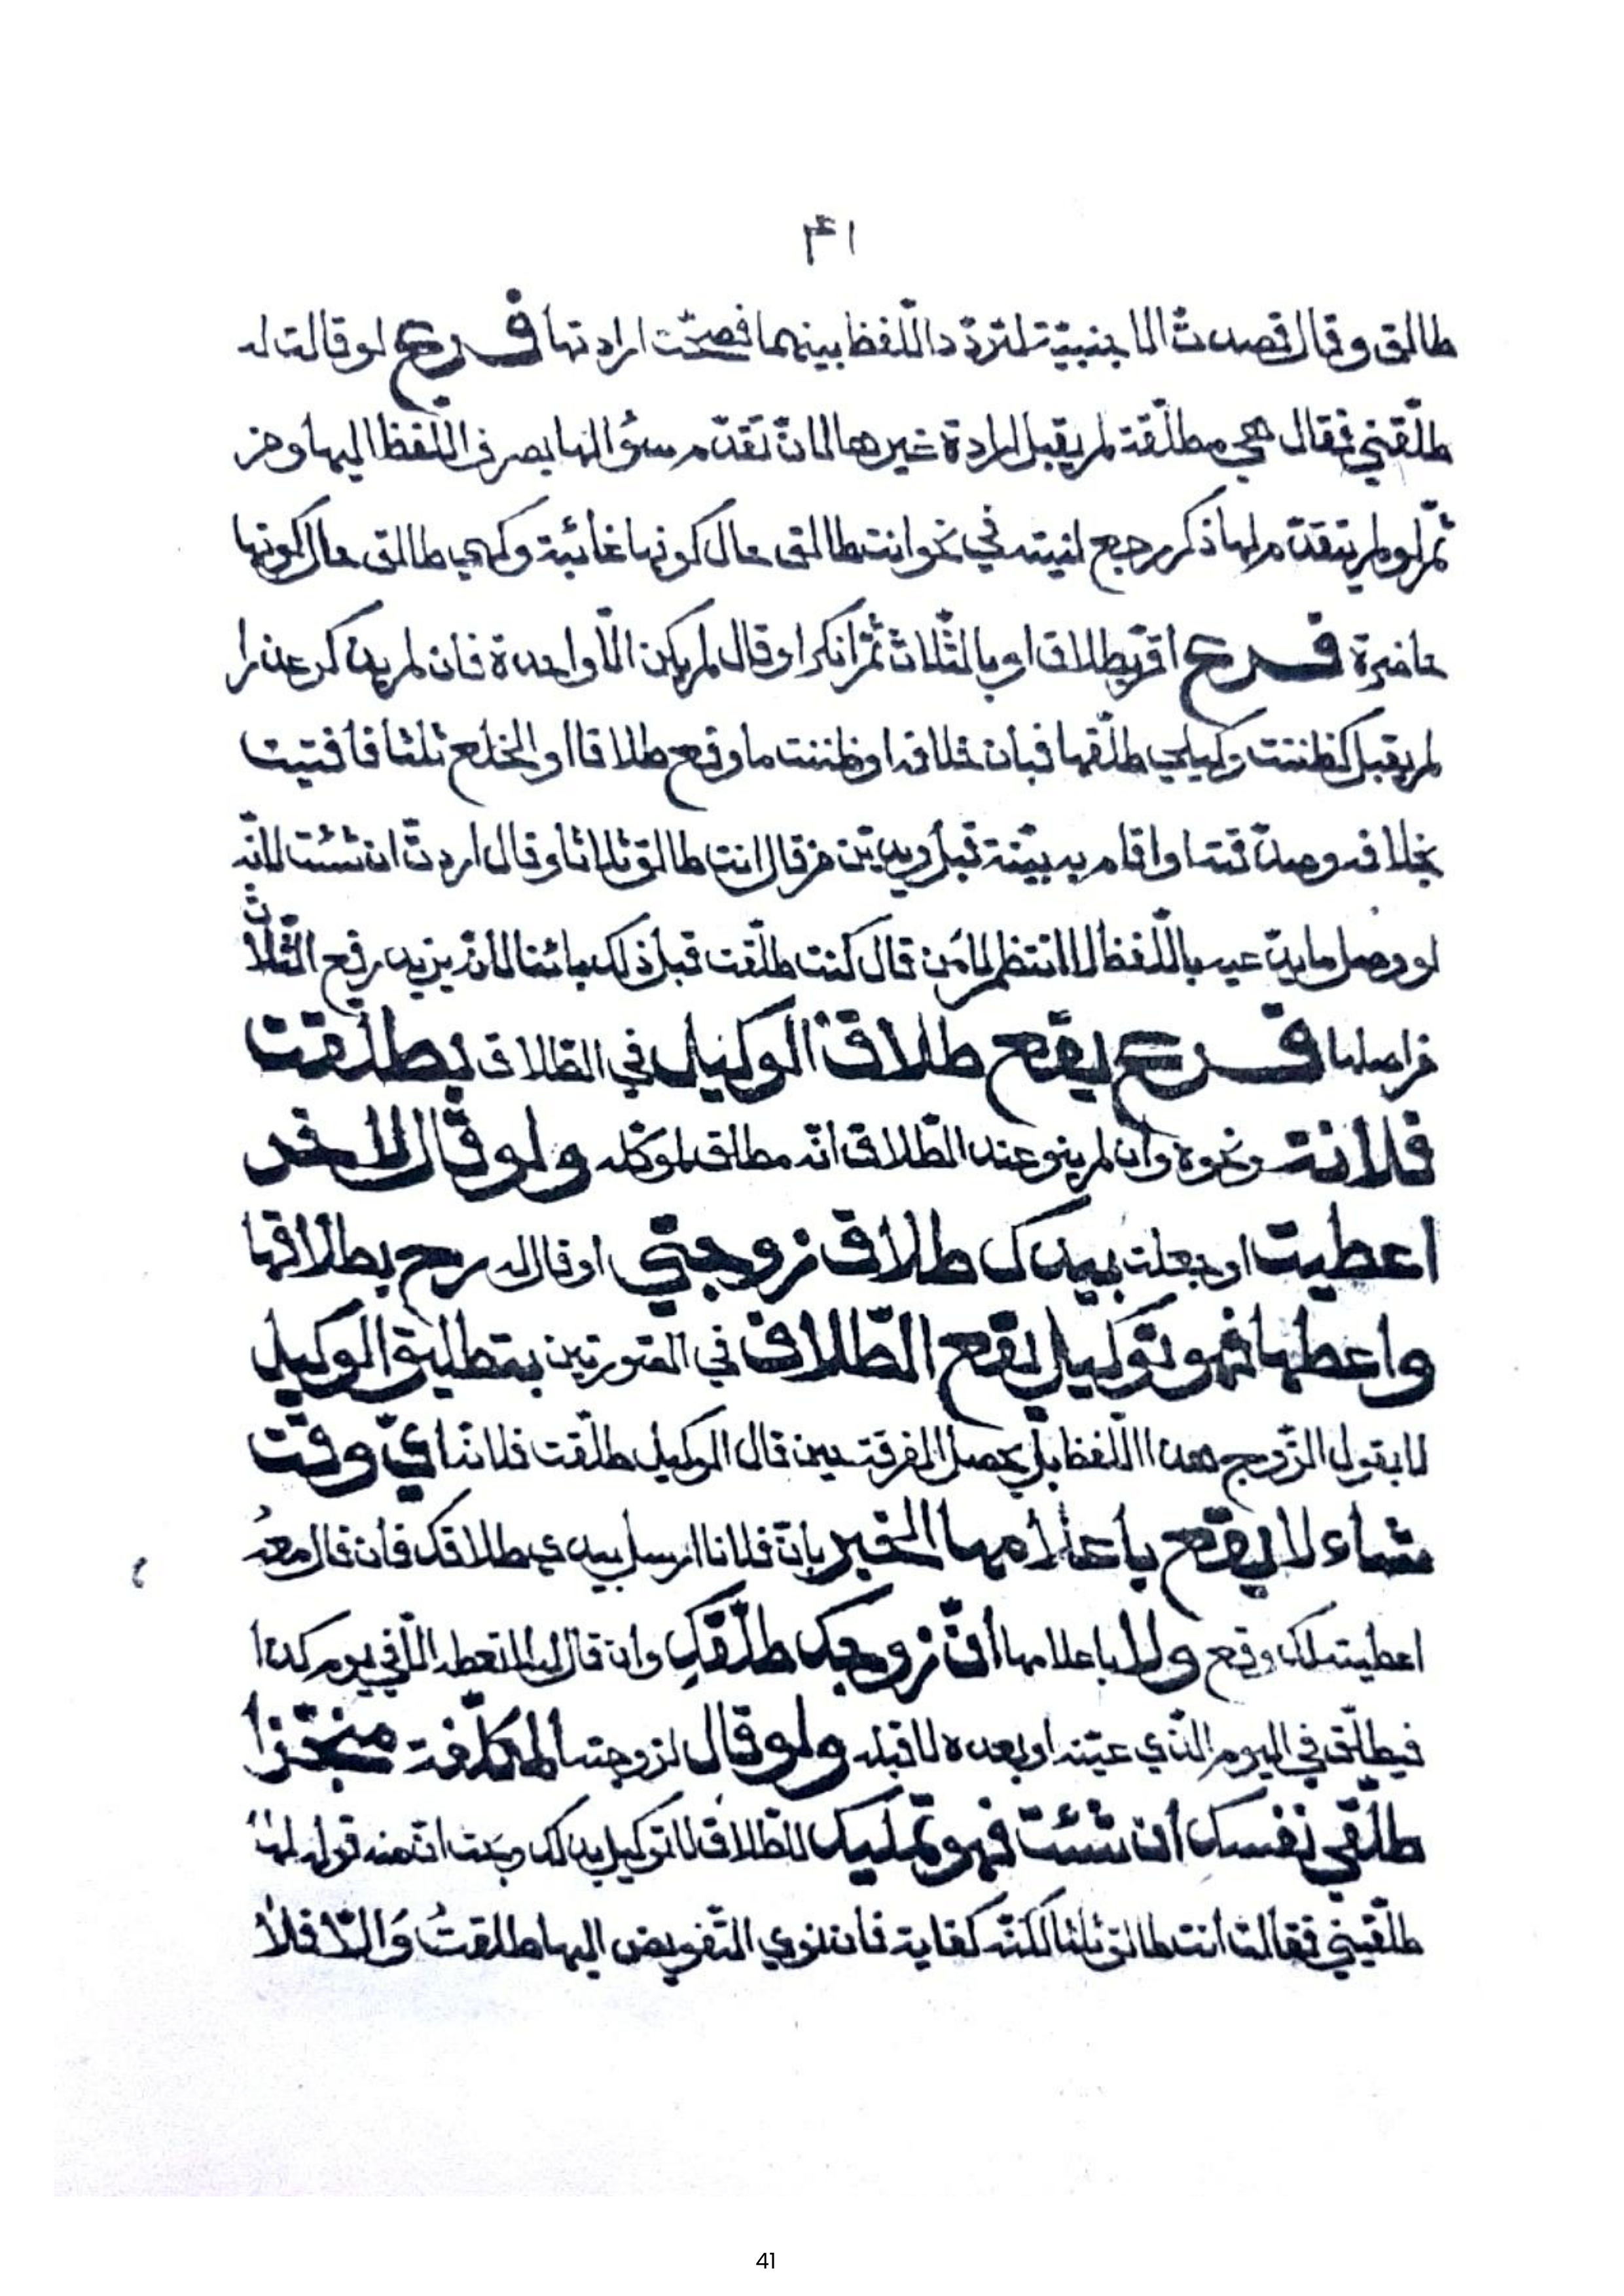 ٤١
طالق وقال قصدتُ الاجنبيّة لتردّد اللّفظ بينهما فصحّت ارادتها فرع لو قالت له
طلّقني فقال هي مطلّقة لم يقبل ارادة غيرها لانّ تقدّم سؤالها يصرف اللّفظ اليها ومن
ثمّ لو لم يتقدّم لها ذكر رجع لنيته في نحو انت طالق حال كونها غائبة وكهي طالق حال كونها
حاضرة فرع اقرّ بطلاق او بالثّلاث ثمّ انكر او قال لم يكن الّا واحدة فان لم يذكر عذرا
لم يقبل كظننت وكيلي طلّقها فبان خلافه او ظننت ما وقع طلاقا او الخلع ثلثا فافتيت
بخلافه وصدّقته او اقام به بيّنة قبل ويديّن من قال انت طالق ثلاثا وقال اردتّ ان شئت لانّه
لو وصل ما يدّعيه باللّفظ لانتظم لا من قال كنت طلّقت قبل ذلك بائنا لانّه يريد رفع الثّلاث
من اصلها فرع يقع طلاق الوكيل في الطّلاق بطلّقت
فلانة ونحوه وان لم ينو عند الطّلاق انّه مطلق لموكّله ولو قال لاخر
اعطيت او جعلت بيدك طلاق زوجتي او قال له رح بطلاقها
واعطها فهو توكيل يقع الطّلاق في الصّورتين بتطليق الوكيل
لا بقول الزّوج هذا اللّفظ بل يحصل الفرقة حين قال الوكيل طلّقت فلانة ايّ وقت
شاء لا يقع باعلامها الخبر بانّ فلانا ارسل بيدي طلاقك فان قال معه
اعطيته لك وقع ولا باعلامها انّ زوجك طلّقكِ وان قال له لا تعطه الّا في يوم كذا
فيطلّق في اليوم الّذي عيّنه او بعده لا قبله ولو قال لزوجته المكلّفة منجّزا
طلّقي نفسك ان شئت فهو تمليك للطّلاق لا توكيل بذلك وبحث انّ منه قوله لها
طلّقيني فقالت انت طالق ثلثا لكنّه كفاية فان نوي التّفويض اليها طلقتُ وَالّا فلا
41